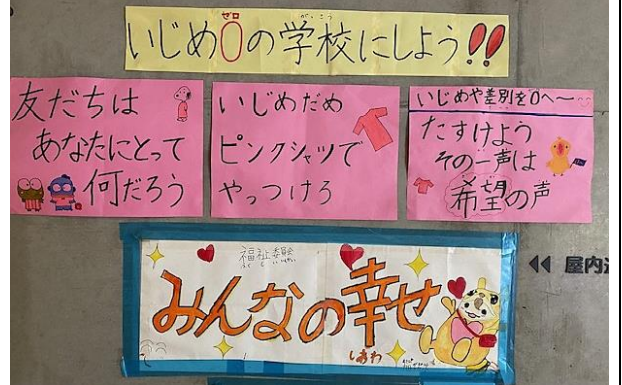 いじめ0の学校にしよう!!
友だちは
あなたにとって
何だろう
いじめだめ
ピンクシャツで
やっつけろ
いじめや差別を0へ〜
たすけよう
その一声は
希望の声
福祉委員会
みんなの幸せ
しあわ
屋内